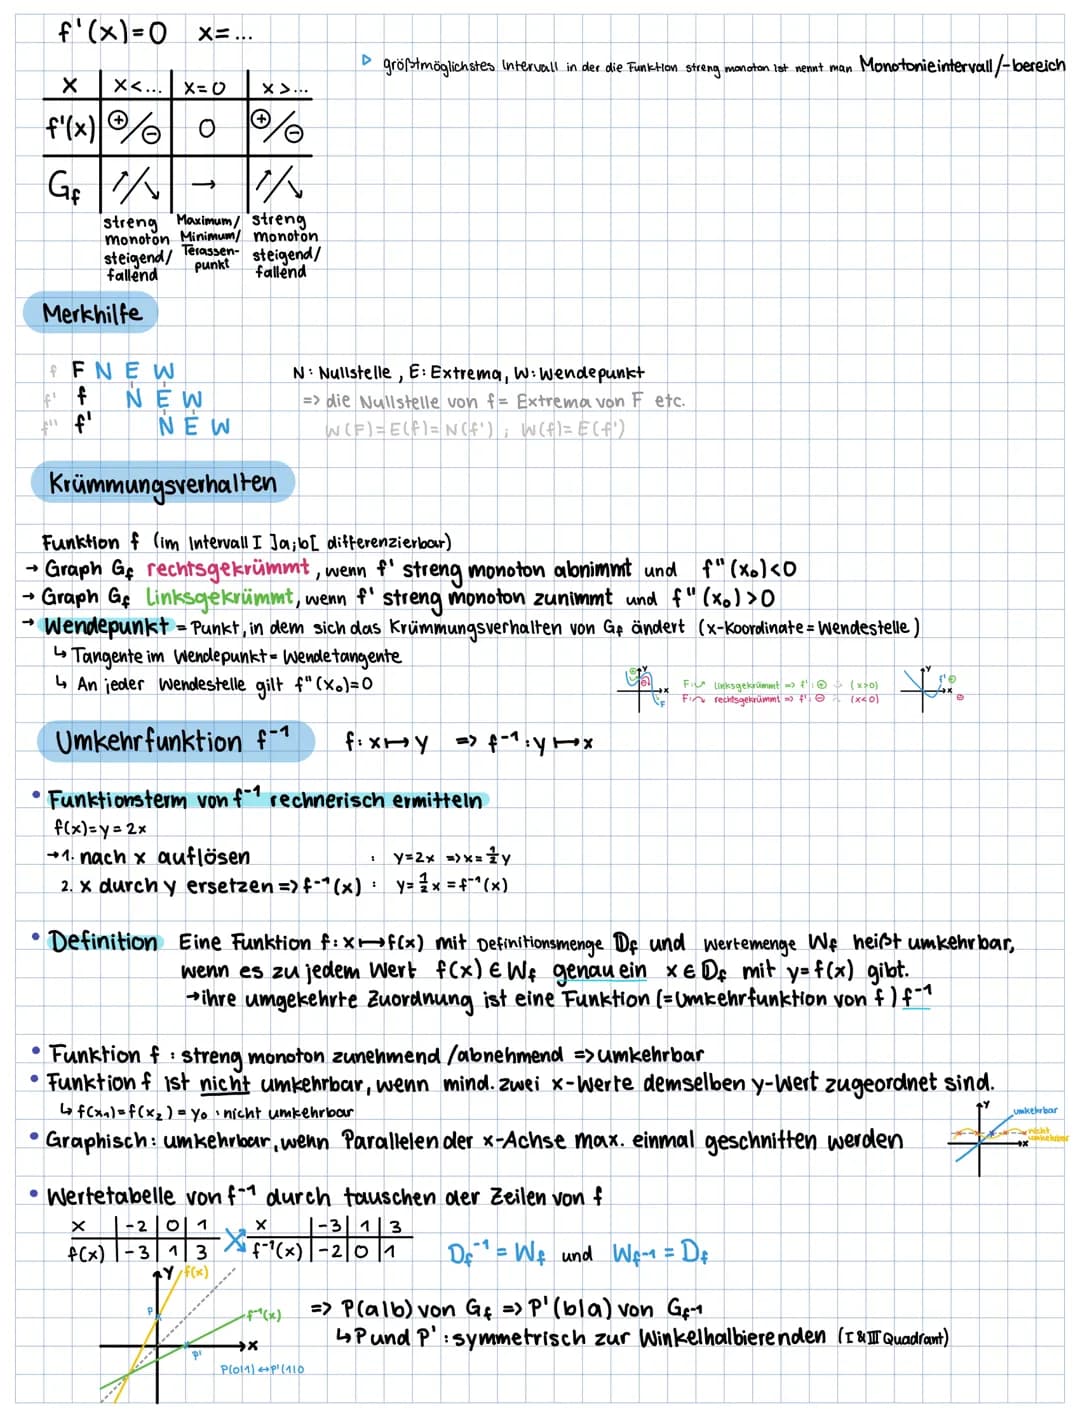 f'(x)=0 x=...
▷ größtmöglichstes Intervall in der die Funktion streng monoton ist nennt man Monotonieintervall/-bereich
x | x<... | x=0 | x>...
f'(x) | ⊕/⊖ | 0 | ⊕/⊖
Gf | ↗/↘ | → | ↗/↘
streng monoton steigend/fallend | Maximum/Minimum/Terassen-punkt | streng monoton steigend/fallend
Merkhilfe
f F N E W
f' f N E W
f'' f' N E W
N: Nullstelle, E: Extrema, W: Wendepunkt
=> die Nullstelle von f = Extrema von F etc.
W(F)=E(f)=N(f') ; W(f)=E(f')
Krümmungsverhalten
Funktion f (im Intervall I ]a;b[ differenzierbar)
→ Graph Gf rechtsgekrümmt, wenn f' streng monoton abnimmt und f"(x₀)<0
→ Graph Gf linksgekrümmt, wenn f' streng monoton zunimmt und f"(x₀)>0
→ Wendepunkt = Punkt, in dem sich das Krümmungsverhalten von Gf ändert (x-Koordinate = Wendestelle)
↳ Tangente im Wendepunkt = Wendetangente
↳ An jeder Wendestelle gilt f"(x₀)=0
y x F
F: linksgekrümmt => f': ⊕ (x>0)
F: rechtsgekrümmt => f': ⊖ (x<0)
y f' ⊕ x ⊖
Umkehrfunktion f⁻¹ f: x↦y => f⁻¹: y↦x
• Funktionsterm von f⁻¹ rechnerisch ermitteln
f(x)=y=2x
→1. nach x auflösen : y=2x => x=½y
2. x durch y ersetzen => f⁻¹(x) : y=½x = f⁻¹(x)
• Definition Eine Funktion f: x↦f(x) mit Definitionsmenge Df und Wertemenge Wf heißt umkehrbar,
wenn es zu jedem Wert f(x) ∈ Wf genau ein x ∈ Df mit y=f(x) gibt.
→ihre umgekehrte Zuordnung ist eine Funktion (=Umkehrfunktion von f) f⁻¹
• Funktion f : streng monoton zunehmend /abnehmend => umkehrbar
• Funktion f ist nicht umkehrbar, wenn mind. zwei x-Werte demselben y-Wert zugeordnet sind.
↳ f(x₁)=f(x₂)=y₀ : nicht umkehrbar
• Graphisch: umkehrbar, wenn Parallelen der x-Achse max. einmal geschnitten werden
y umkehrbar
nicht umkehrbar
x
• Wertetabelle von f⁻¹ durch tauschen der Zeilen von f
x | -2 | 0 | 1 x | -3 | 1 | 3
f(x) | -3 | 1 | 3 f⁻¹(x) | -2 | 0 | 1
Df⁻¹ = Wf und Wf⁻¹ = Df
y f(x)
P f⁻¹(x)
x
P'
P(0|1) ↔ P'(1|0
=> P(a|b) von Gf => P'(b|a) von Gf⁻¹
↳ P und P' : symmetrisch zur Winkelhalbierenden (I & III Quadrant)